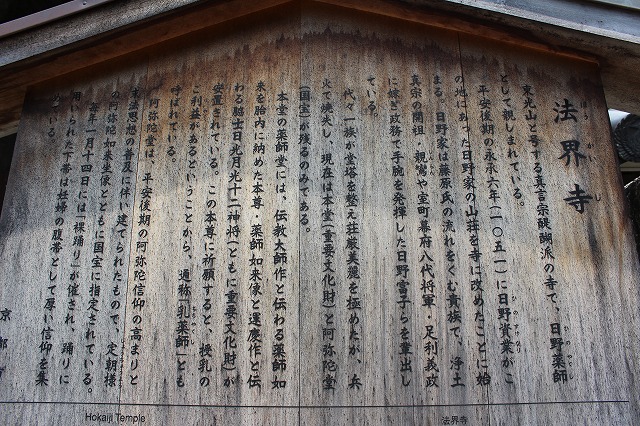 法界寺
ほう かい じ
東光山と号する真言宗醍醐派の寺で、日野薬師
として親しまれている。
平安後期の永承六年(一〇五一)に日野資業がこ
の地にあった日野家の山荘を寺に改めたことに始
まる。日野家は藤原氏の流れをくむ貴族で、浄土
真宗の開祖・親鸞や室町幕府八代将軍・足利義政
に嫁ぎ政務で手腕を発揮した日野富子らを輩出し
ている。
代々一族が堂塔を整え荘厳美麗を極めたが、兵
火で焼失し、現在は本堂(重要文化財)と阿弥陀堂
(国宝)が残るのみである。
本堂の薬師堂には、伝教大師作と伝わる薬師如
来を胎内に納めた本尊・薬師如来像と運慶作と伝
わる脇士日光月光十二神将(ともに重要文化財)が
安置されている。この本尊に祈願すると、授乳の
ご利益があるということから、通称「乳薬師」とも
呼ばれている。
阿弥陀堂は、平安後期の阿弥陀信仰の高まりと
末法思想の普及に伴い建てられたもので、定朝様
の阿弥陀如来坐像とともに国宝に指定されている。
毎年一月十四日には「裸踊り」が催され、踊りに
用いられた下帯は妊婦の腹帯として厚い信仰を集
めている。
京都
Hokaiji Temple
法界寺